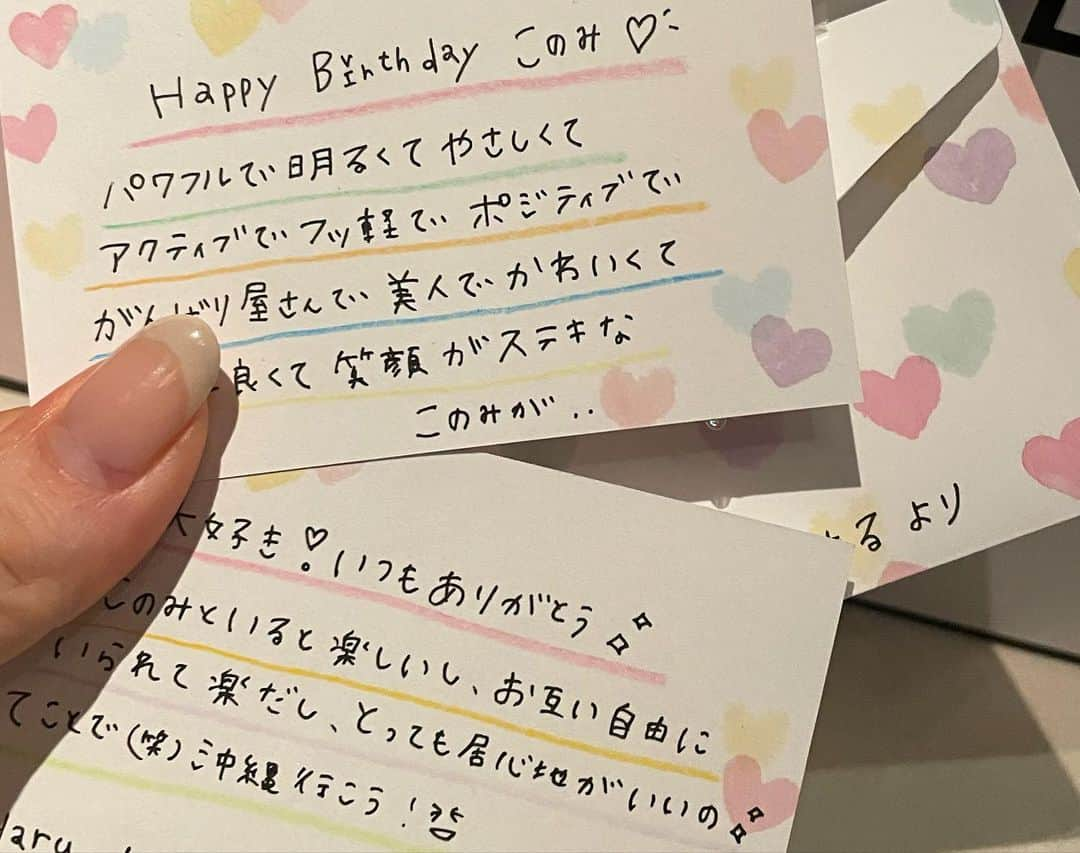 Happy Birthday このみ♡
パワフルで明るくて やさしくて
アクティブで フッ軽で ポジティブで
がんばり屋さんで 美人で かわいくて
良くて 笑顔がステキな
このみが‥
大好き!♡ いつもありがとう
このみといると楽しいし、お互い自由に
いられて楽だし、とっても居心地がいいの
てことで(笑)沖縄行こう!
aru
るより